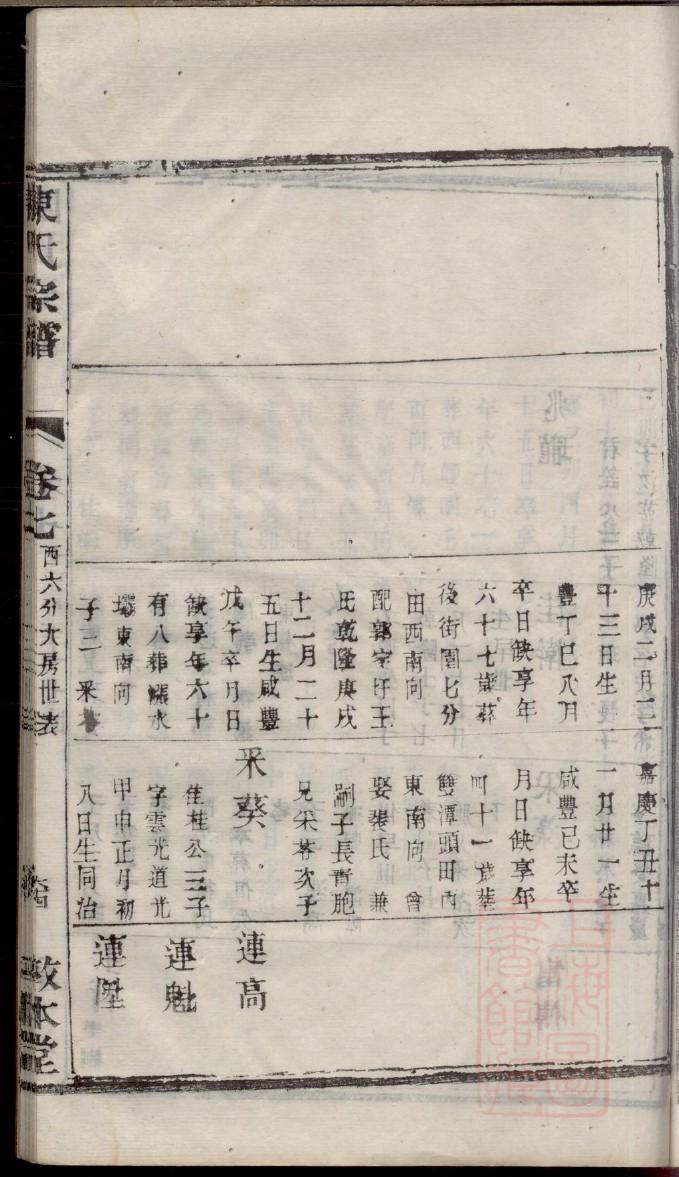 庚戌二月二
十三日生
豐丁巳八月
卒日缺享年
六十七歲葬
後街園七分
田西南向
配郭家圩王
氏乾隆庚戌
十二月二十
五日生咸豐
戊午卒月日
缺享年六十
有八葬
水
壩東南向
子二 采
嘉慶丁丑十
一月廿一生
咸豐己未卒
月日缺享年
四十一歲葬
雙潭頭田內
東南向 曾
娶裴氏 兼
嗣子長青胞
兄采芩次子
采葵
生桂公三子
字雲光道光
甲申正月初
八日生同治
連高
連魁
連陞
陳氏宗譜
卷七
西六分大房世表
敦本堂